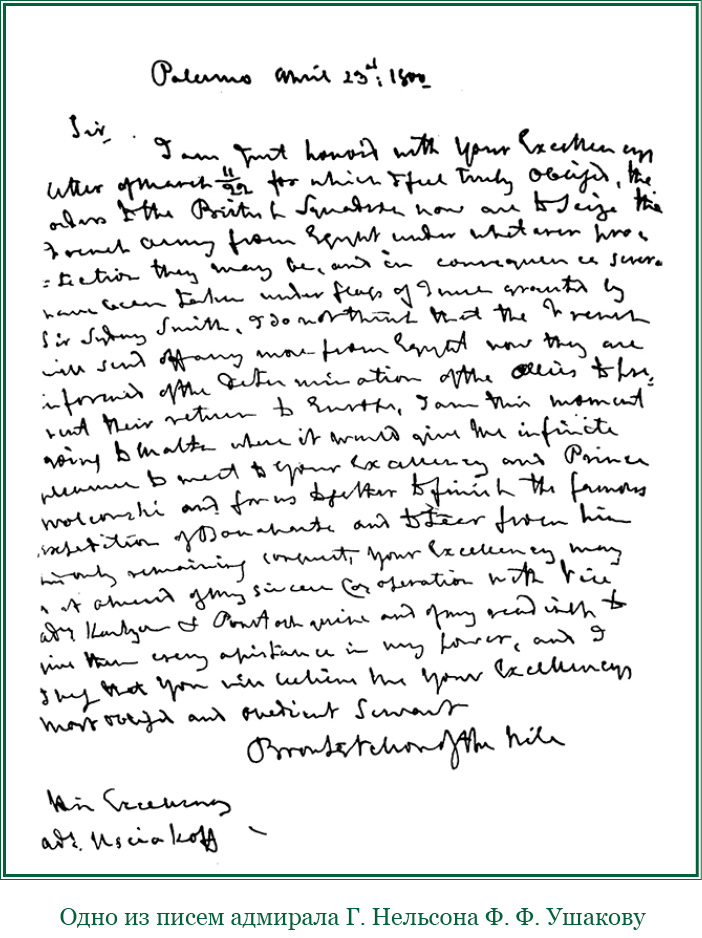 Palermo April 23d: 1800
Sir
I am just honor'd with Your Excellencys
letter of March 11/22 for which I feel truly obliged, the
orders to the British Squadron now are to seize the
French army from Egypt under whatever pro=
=tection they may be, and in consequence several
have been taken under flags of Truce granted by
Sir Sydney Smith, I do not think that the French
will send off any more from Egypt now they are
informed of the determination of the allies to pre=
vent their return to Europe, I am this moment
going to Malta where it would give me infinite
pleasure to meet to Your Excellency and Prince
Wolconski and for us together to finish the famous
expedition of Bonaparte and to tear from him
his only remaining conquest, Your Excellency may
be assured of my sincere Cooperation with Vice
adl Kartzow & and of my readiness to
give them every assistance in my power, and I
beg that you will believe me Your Excellencys
most obliged and obedient Servant
Bronte Nelson of the Nile
His Excellency
adl. Usciakoff
Одно из писем адмирала Г. Нельсона Ф. Ф. Ушакову